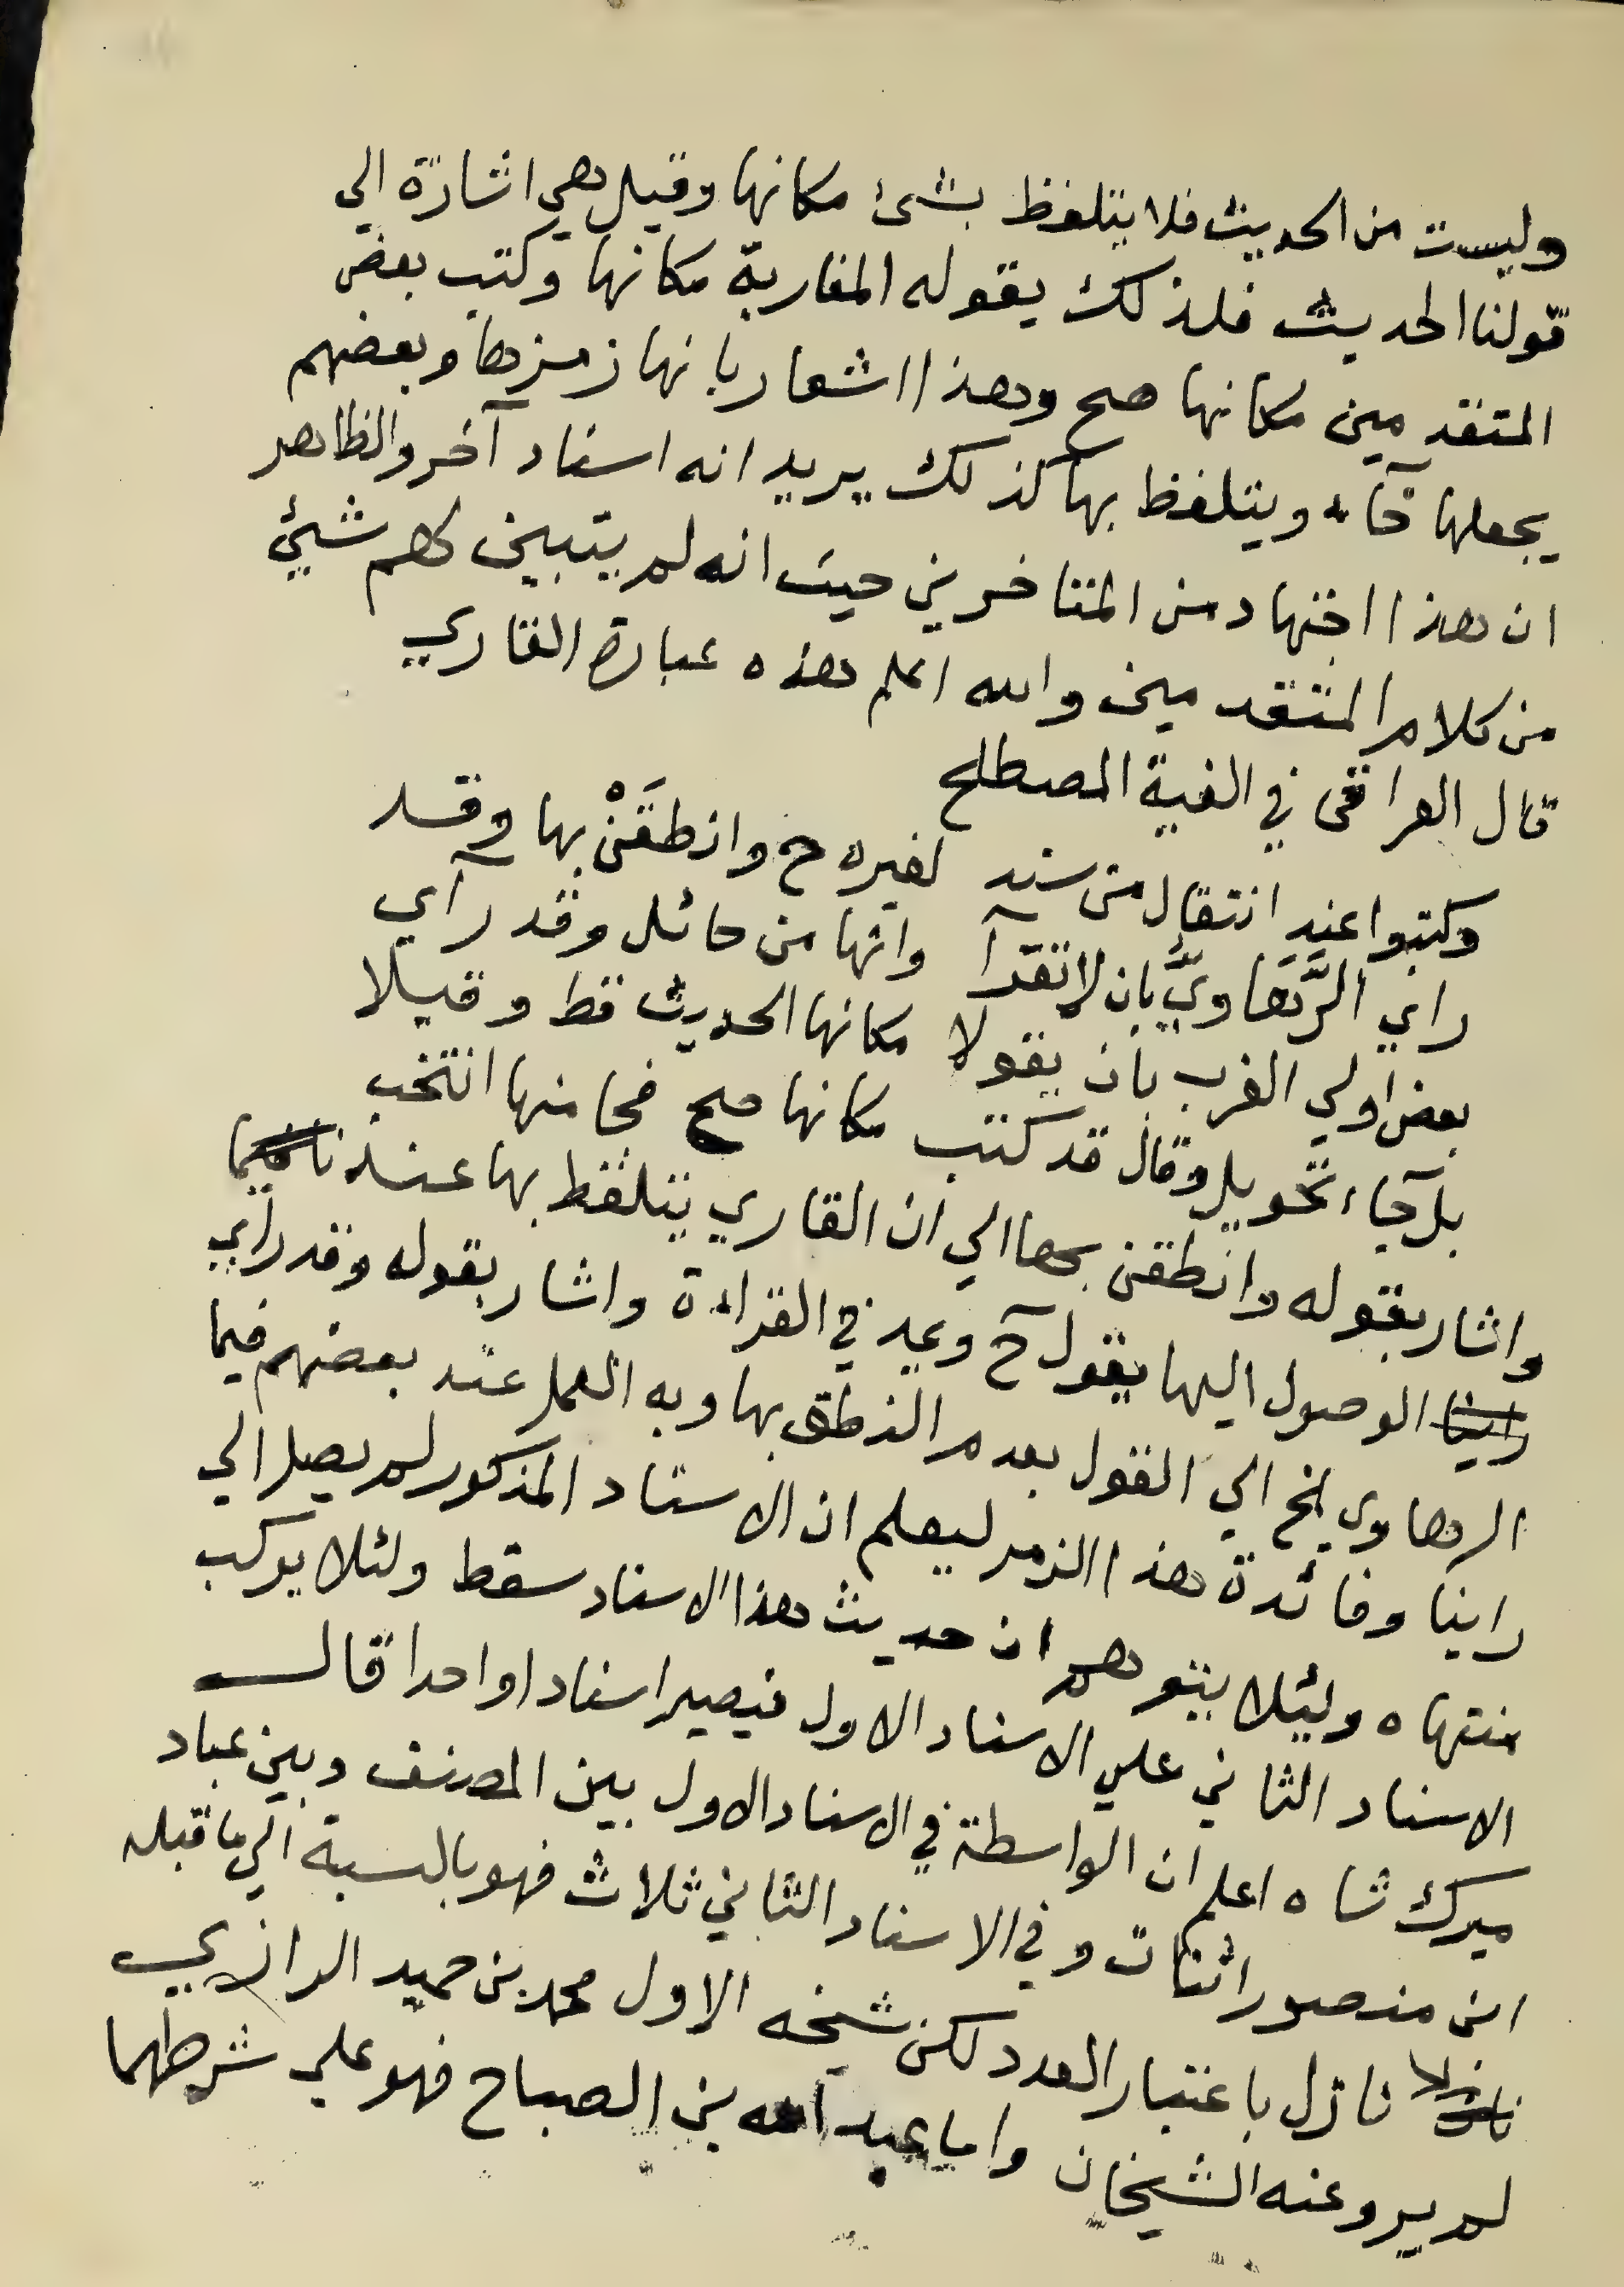 وليست من الحديث فلا يتلفظ بشئ مكانها وقيل هي اشارة الي
قولنا الحديث فلذلك يقوله المغاربة مكانها وكتب بعض
المتقدمين مكانها صح وهذا اشعار بانها رمزها وبعضهم
يجعلها حآء ويتلفظ بها كذلك يريد انه اسناد آخر والظاهر
ان هذا اجتهاد من المتاخرين حيث انه لم يتبين لهم شيئ
من كلام المتقدمين والله اعلم هذه عبارة القاري
قال العراقي في الفية المصطلح
وكتبوا عند انتقال من سند لغيره ح وانطقَنْ بها وقد
راي الرَّهَاويُّ بان لا تقرآ وانها من حائل وقد رآي
بعض اولي الغرب بان يقولا مكانها الحديث قط وقيلا
بل حآء تحويل وقال قد كتب مكانها صح فحا منها انتخب
واشار بقوله وانطقن بها الي ان القاري يتلفظ بها عند
الوصول اليها يقول حآ ويمد في القراءة واشار بقوله وقد راي
الرهاوي الخ الي القول بعدم النطق بها وبه العمل عند بعضهم فيما
راينا وفائدة هذا الرمز ليعلم ان الاسناد المذكور لم يصل الي
منتهاه ولئلا يتوهم ان حديث هذا الاسناد سقط ولئلا يركب
الاسناد الثاني علي الاسناد الاول فيصير اسنادا واحدا قال
ميرك شاه اعلم ان الواسطة في الاسناد الاول بين المصنف وبين عباد
ابن منصور اثنان وفي الاسناد الثاني ثلاث فهو بالنسبة الي ما قبله
نازل باعتبار العدد لكن شيخه الاول محمد بن حميد الرازي
لم يرو عنه الشيخان واما عبد الله بن الصباح فهو علي شرطهما